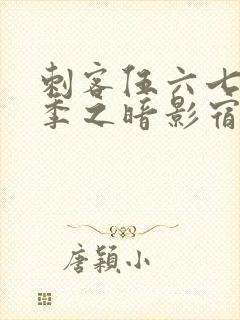 刺客伍六七
季之暗影宿
唐颖小